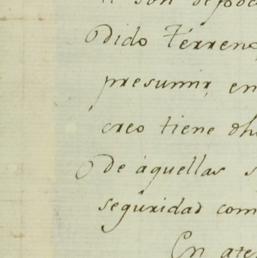 son
Dido Terreno
presumir, en
creo tiene dho
De aquellas s
seguridad com
En ate